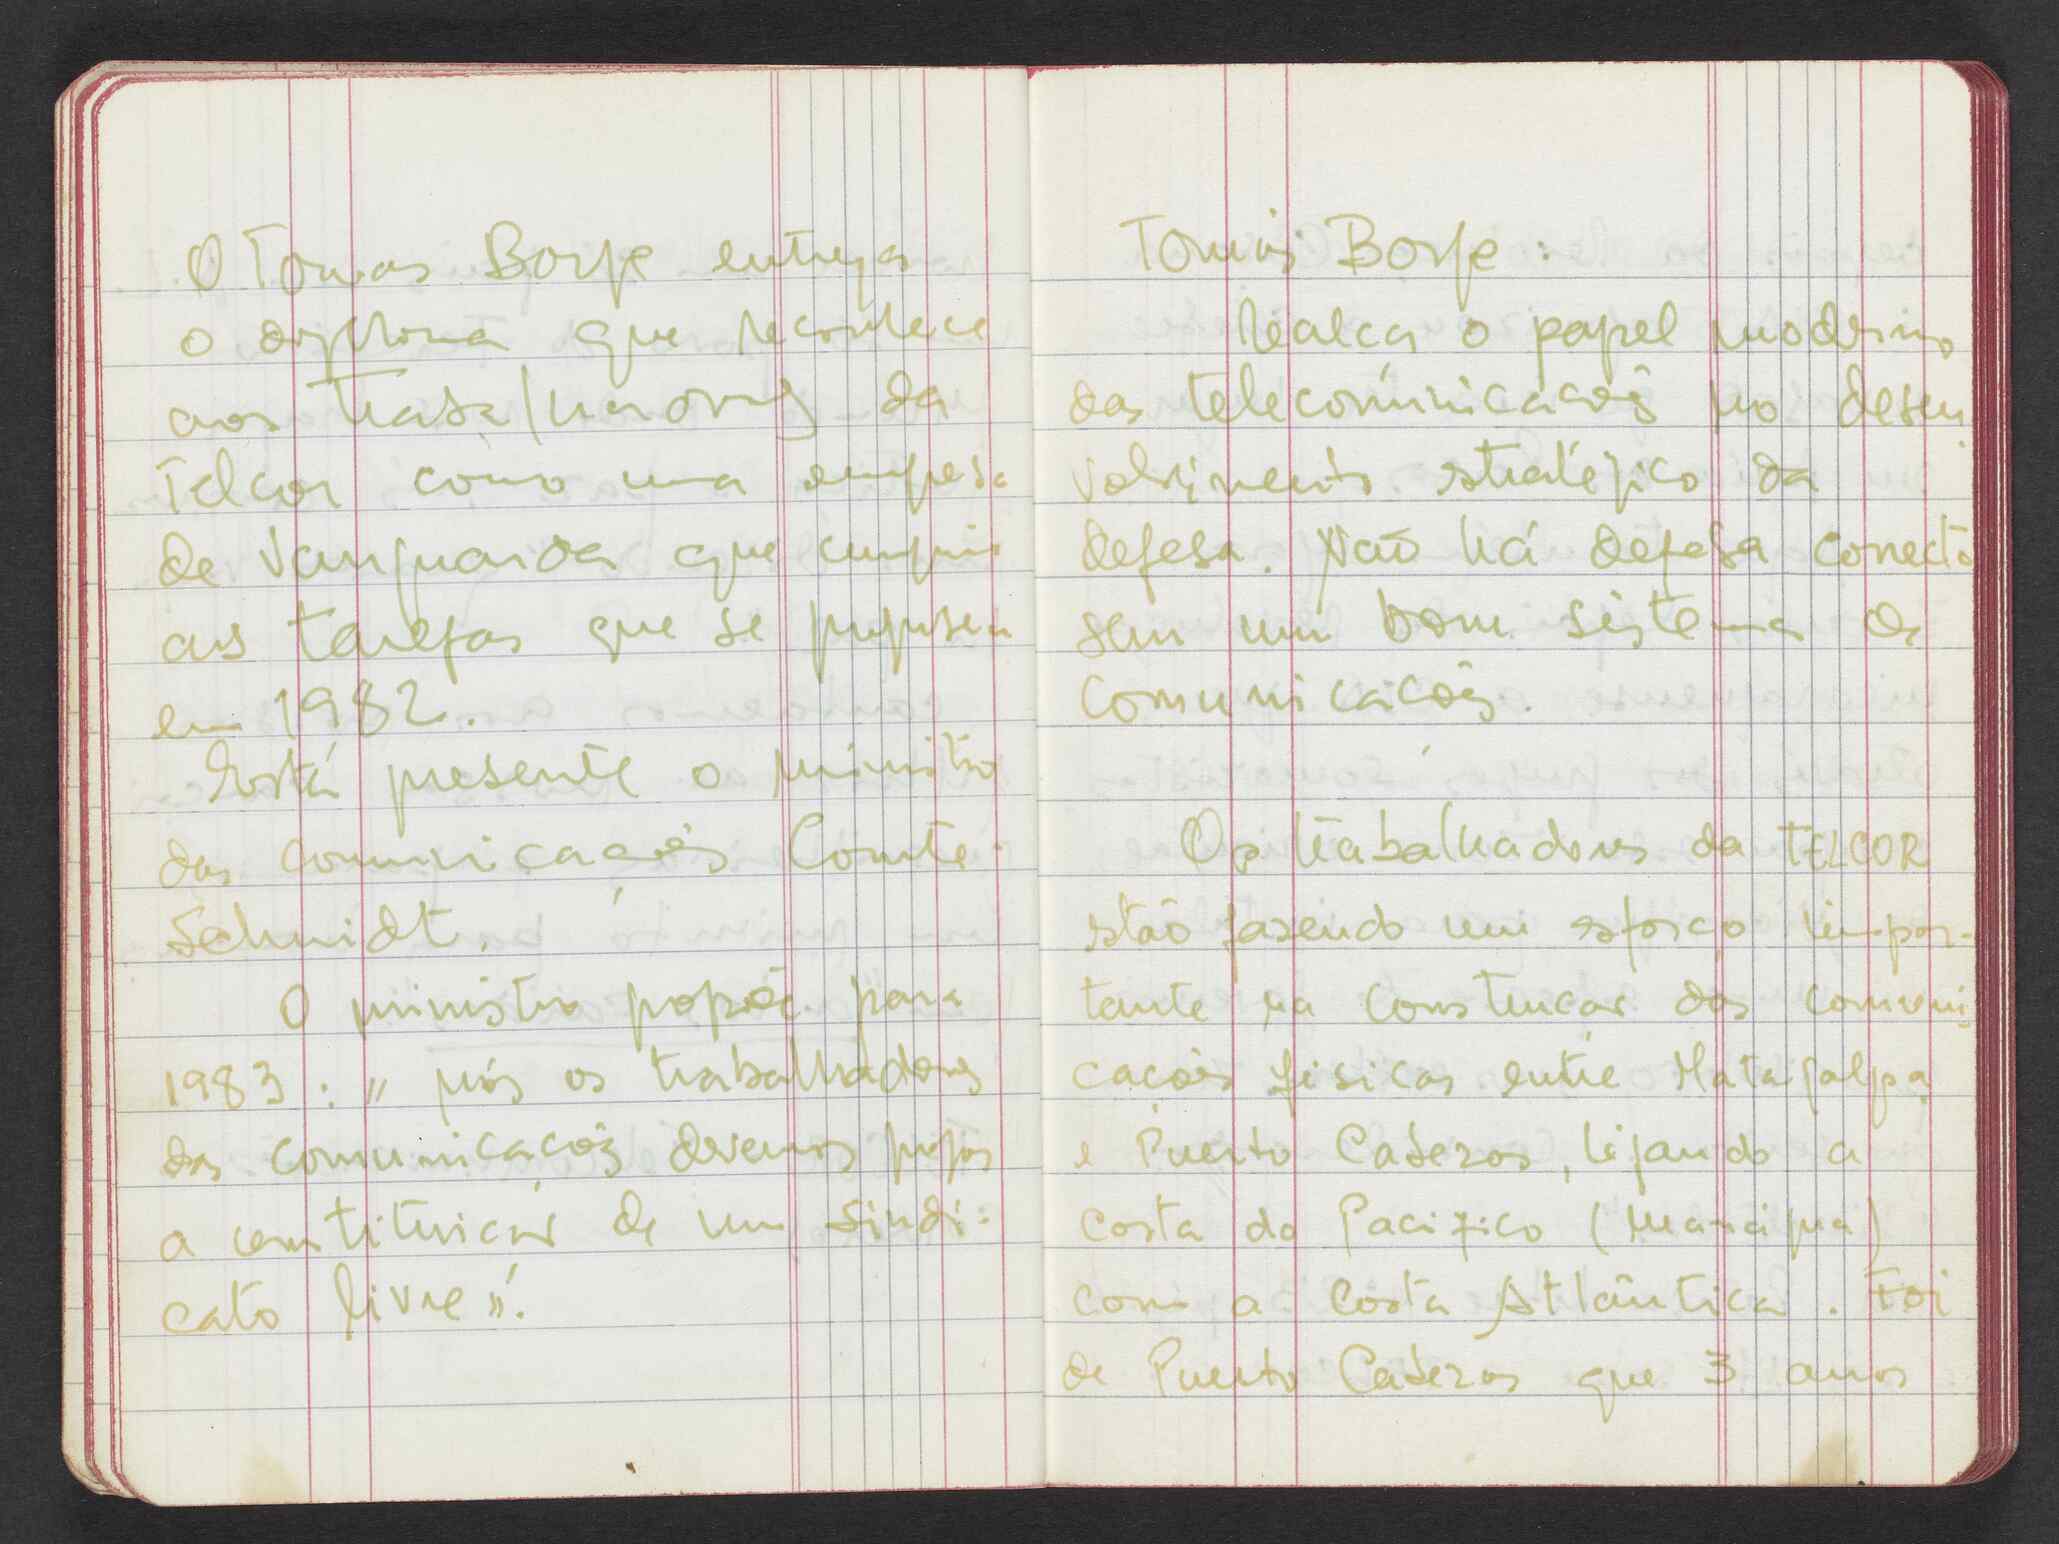 O Tomas Borge entrega
o diploma que reconhece
aos trabalhadores da
Telcor como uma empresa
de vanguarda que cumpriu
as tarefas que se propusera
em 1982.
Está presente o ministro
das comunicações Comte.
Schmidt.
O ministro propõe para
1983: "nós os trabalhadores
das comunicações devemos propor
a constituição de um sindi=
cato livre".
Tomás Borge:
realça o papel moderno
das telecomunicações no desen
volvimento stratégico da
defesa. Não há defesa correcta
sem um bom sistema de
comunicações.
Os trabalhadores da TELCOR
stão fazendo um esforço impor-
tante na construção das comuni
cações físicas entre Matagalpa
e Puerto Cabezas, ligando a
costa do Pacifico (Managua)
com a Costa Atlântica. Foi
de Puerto Cabezas que 3 anos